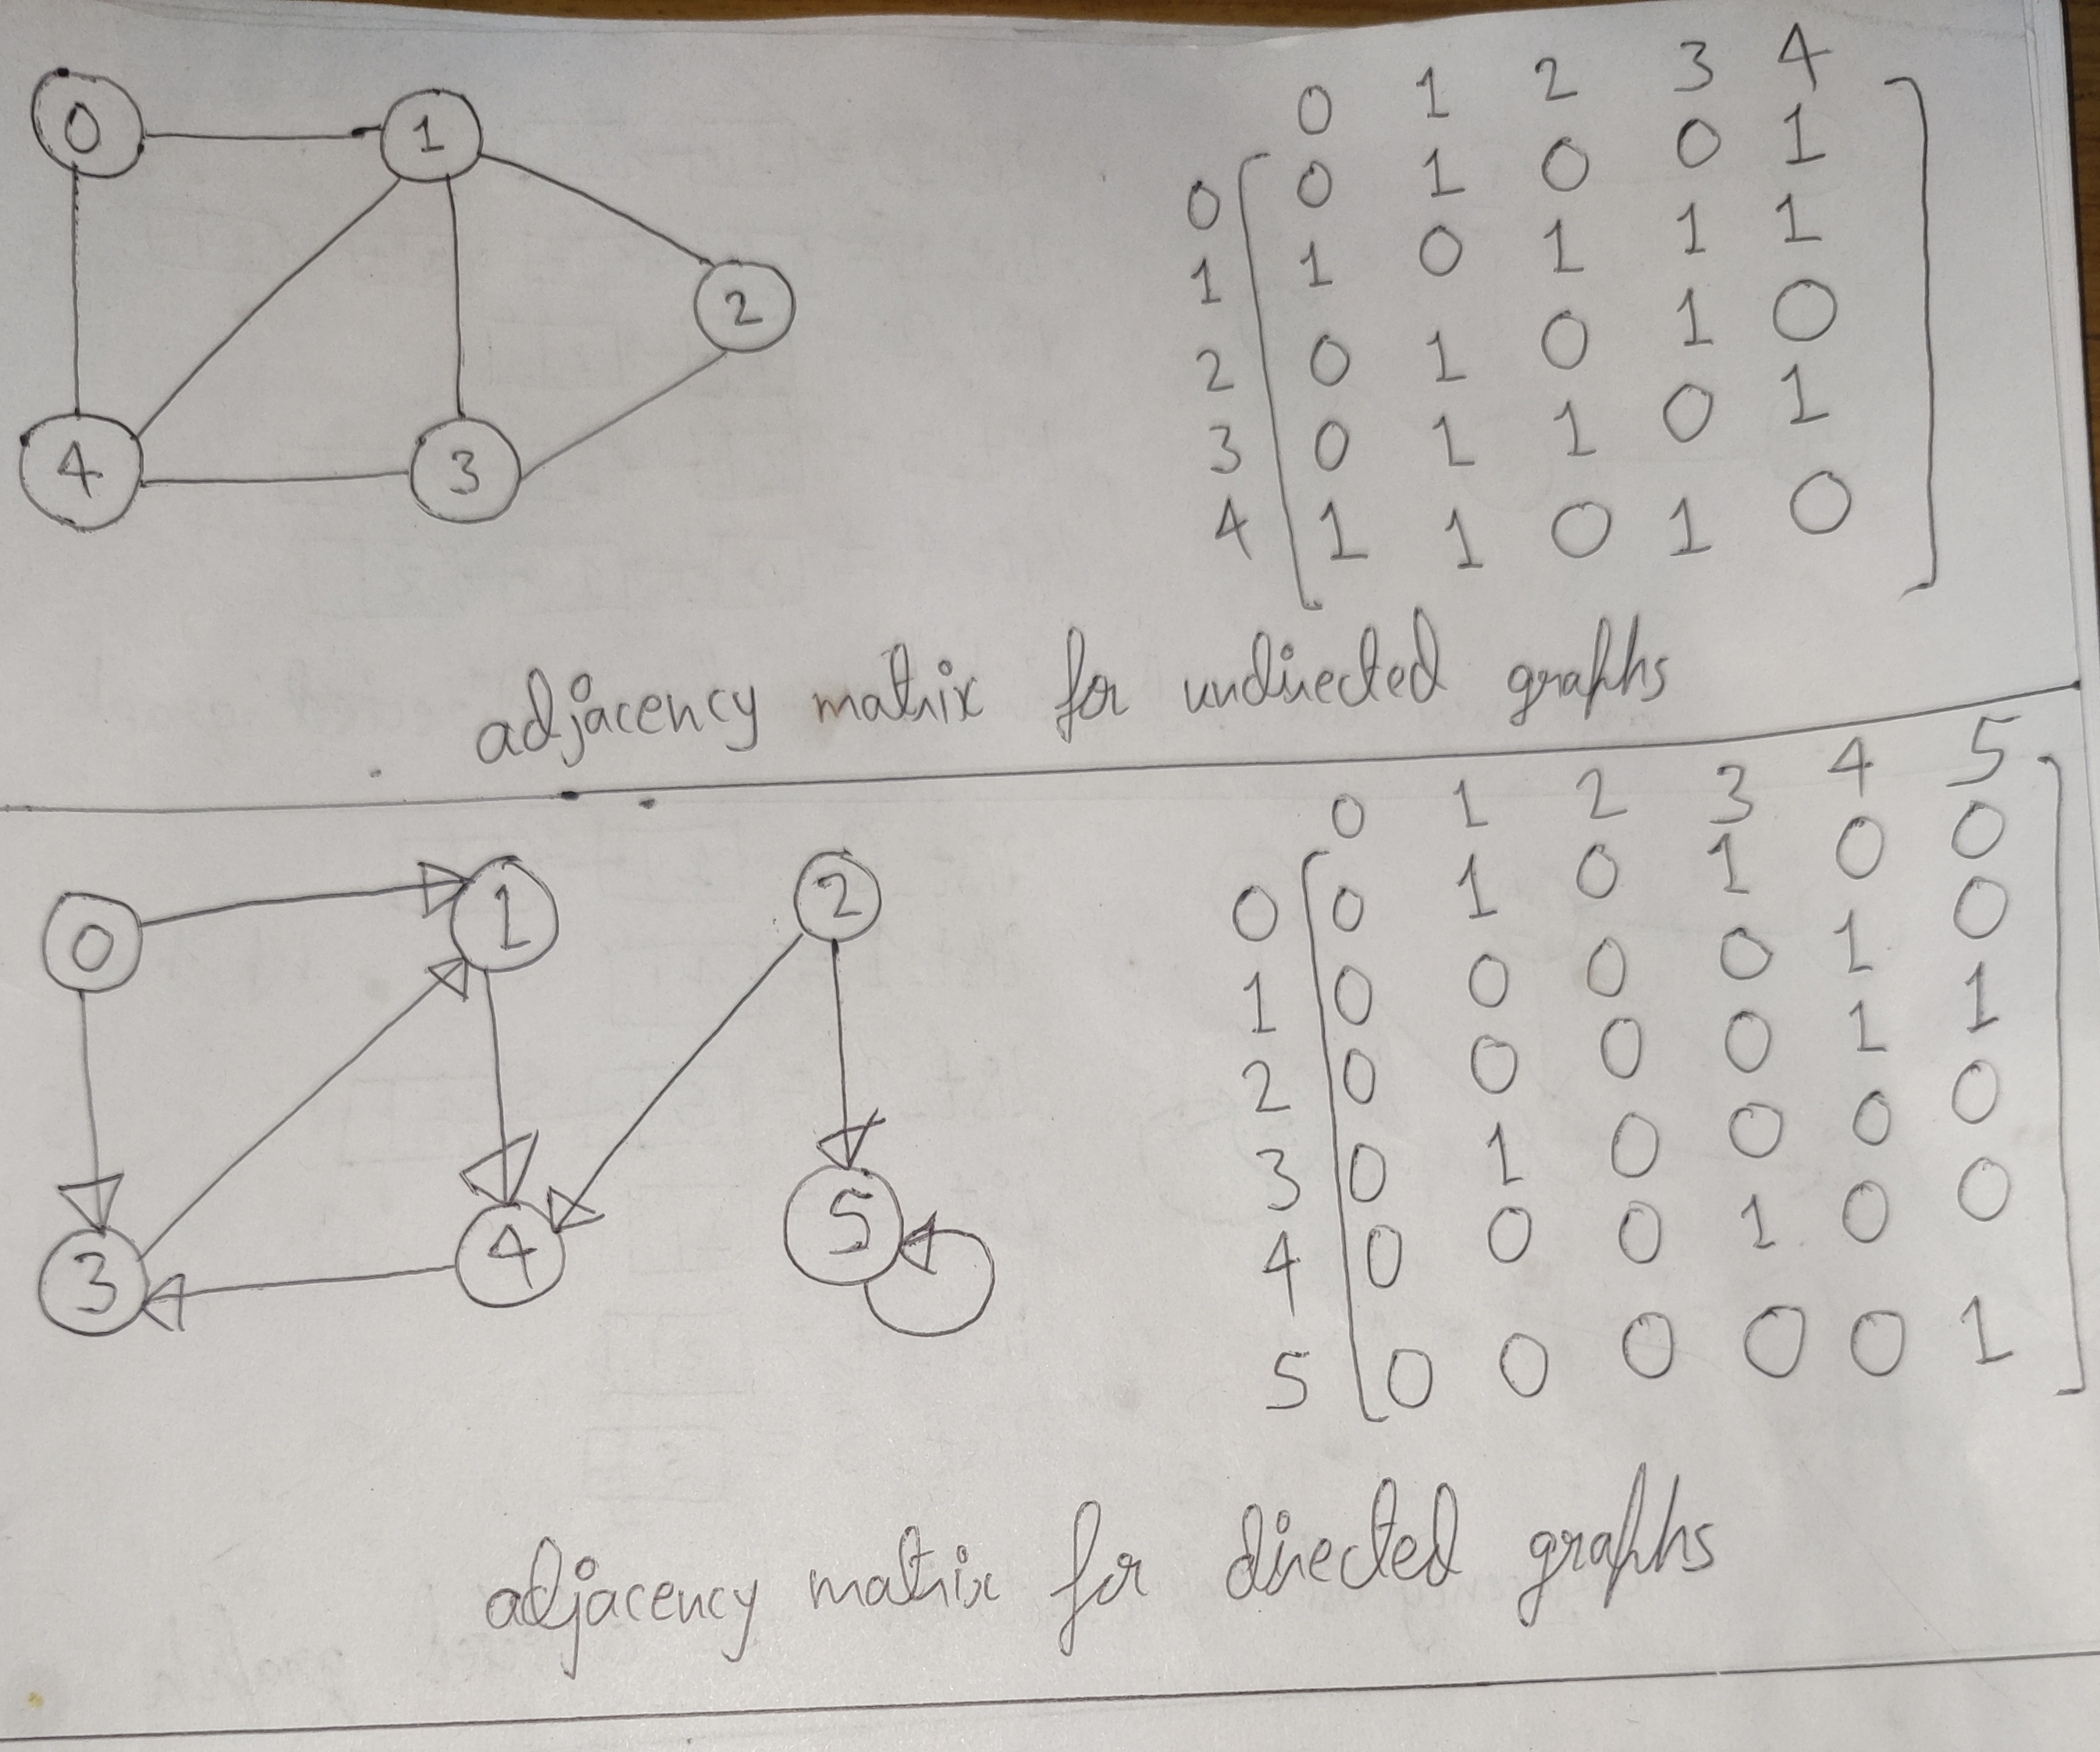 0 1
2
4 3
0 1 2 3 4
0 0 1 0 0 1
1 1 0 1 1 1
2 0 1 0 1 0
3 0 1 1 0 1
4 1 1 0 1 0
adjacency matrix for undirected graphs
0 1 2
3 4 5
0 1 2 3 4 5
0 0 1 0 1 0 0
1 0 0 0 0 1 0
2 0 0 0 0 1 1
3 0 1 0 0 0 0
4 0 0 0 1 0 0
5 0 0 0 0 0 1
adjacency matrix for directed graphs